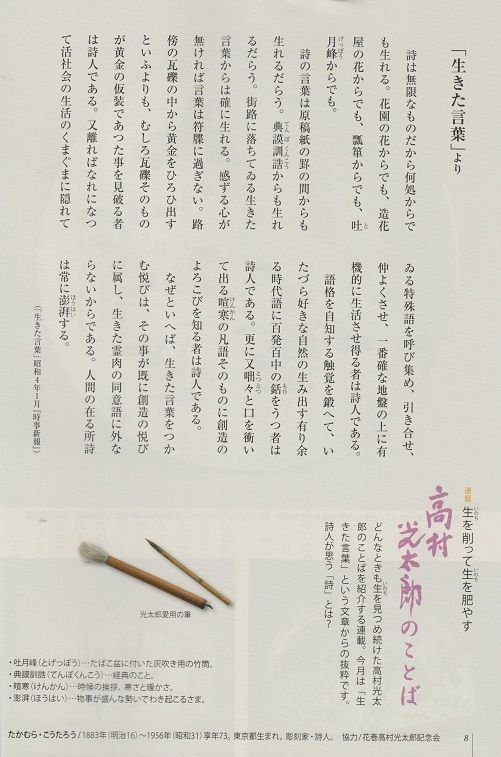 連載 生を削って生を肥やす
いのち
いのち
高村光太郎のことば
どんなときも生を見つめ続けた高村光太
いのち
郎のことばを紹介する連載。今月は「生
きた言葉」という文章からの抜粋です。
詩人が思う「詩」とは?
「生きた言葉」より
詩は無限なものだから何処からで
も生れる。花園の花からでも、造花
屋の花からでも、瓢箪からでも、吐
と
月峰からでも。
げっぽう
詩の言葉は原稿紙の罫の間からも
生れるだらう。典謨訓誥からも生れ
てんぼくんこう
るだらう。街路に落ちてゐる生きた
言葉からは確に生れる。感ずる心が
無ければ言葉は符牒に過ぎない。路
傍の瓦礫の中から黄金をひろひ出す
といふよりも、むしろ瓦礫そのもの
が黄金の仮装であつた事を見破る者
は詩人である。又離ればなれになつ
て活社会の生活のくまぐまに隠れて
ゐる特殊語を呼び集め、引き合せ、
仲よくさせ、一番確な地盤の上に有
機的に生活させ得る者は詩人である。
語格を自知する触覚を鍛へて、い
たづら好きな自然の生み出す有り余
る時代語に百発百中の銛をうつ者は
もり
詩人である。更に又咄々と口を衝い
とつとつ
て出る喧寒の凡語そのものに創造の
げんかん
よろこびを知る者は詩人である。
なぜといへば、生きた言葉をつか
む悦びは、その事が既に創造の悦び
に属し、生きた霊肉の同意語に外な
らないからである。人間の在る所詩
は常に澎湃する。
ほうはい
(「生きた言葉」昭和4年1月『時事新報』)
光太郎愛用の筆
・吐月峰(とげっぽう)…たばこ盆に付いた灰吹き用の竹筒。
・典謨訓誥(てんぼくんこう)…経典のこと。
・喧寒(けんかん)…時候の挨拶、寒さと暖かさ。
・澎湃(ほうはい)…物事が盛んな勢いでわき起こるさま。
たかむら・こうたろう/1883年(明治16)〜1956年(昭和31)享年73。東京都生まれ。彫刻家・詩人。 協力/花巻高村光太郎記念会
8